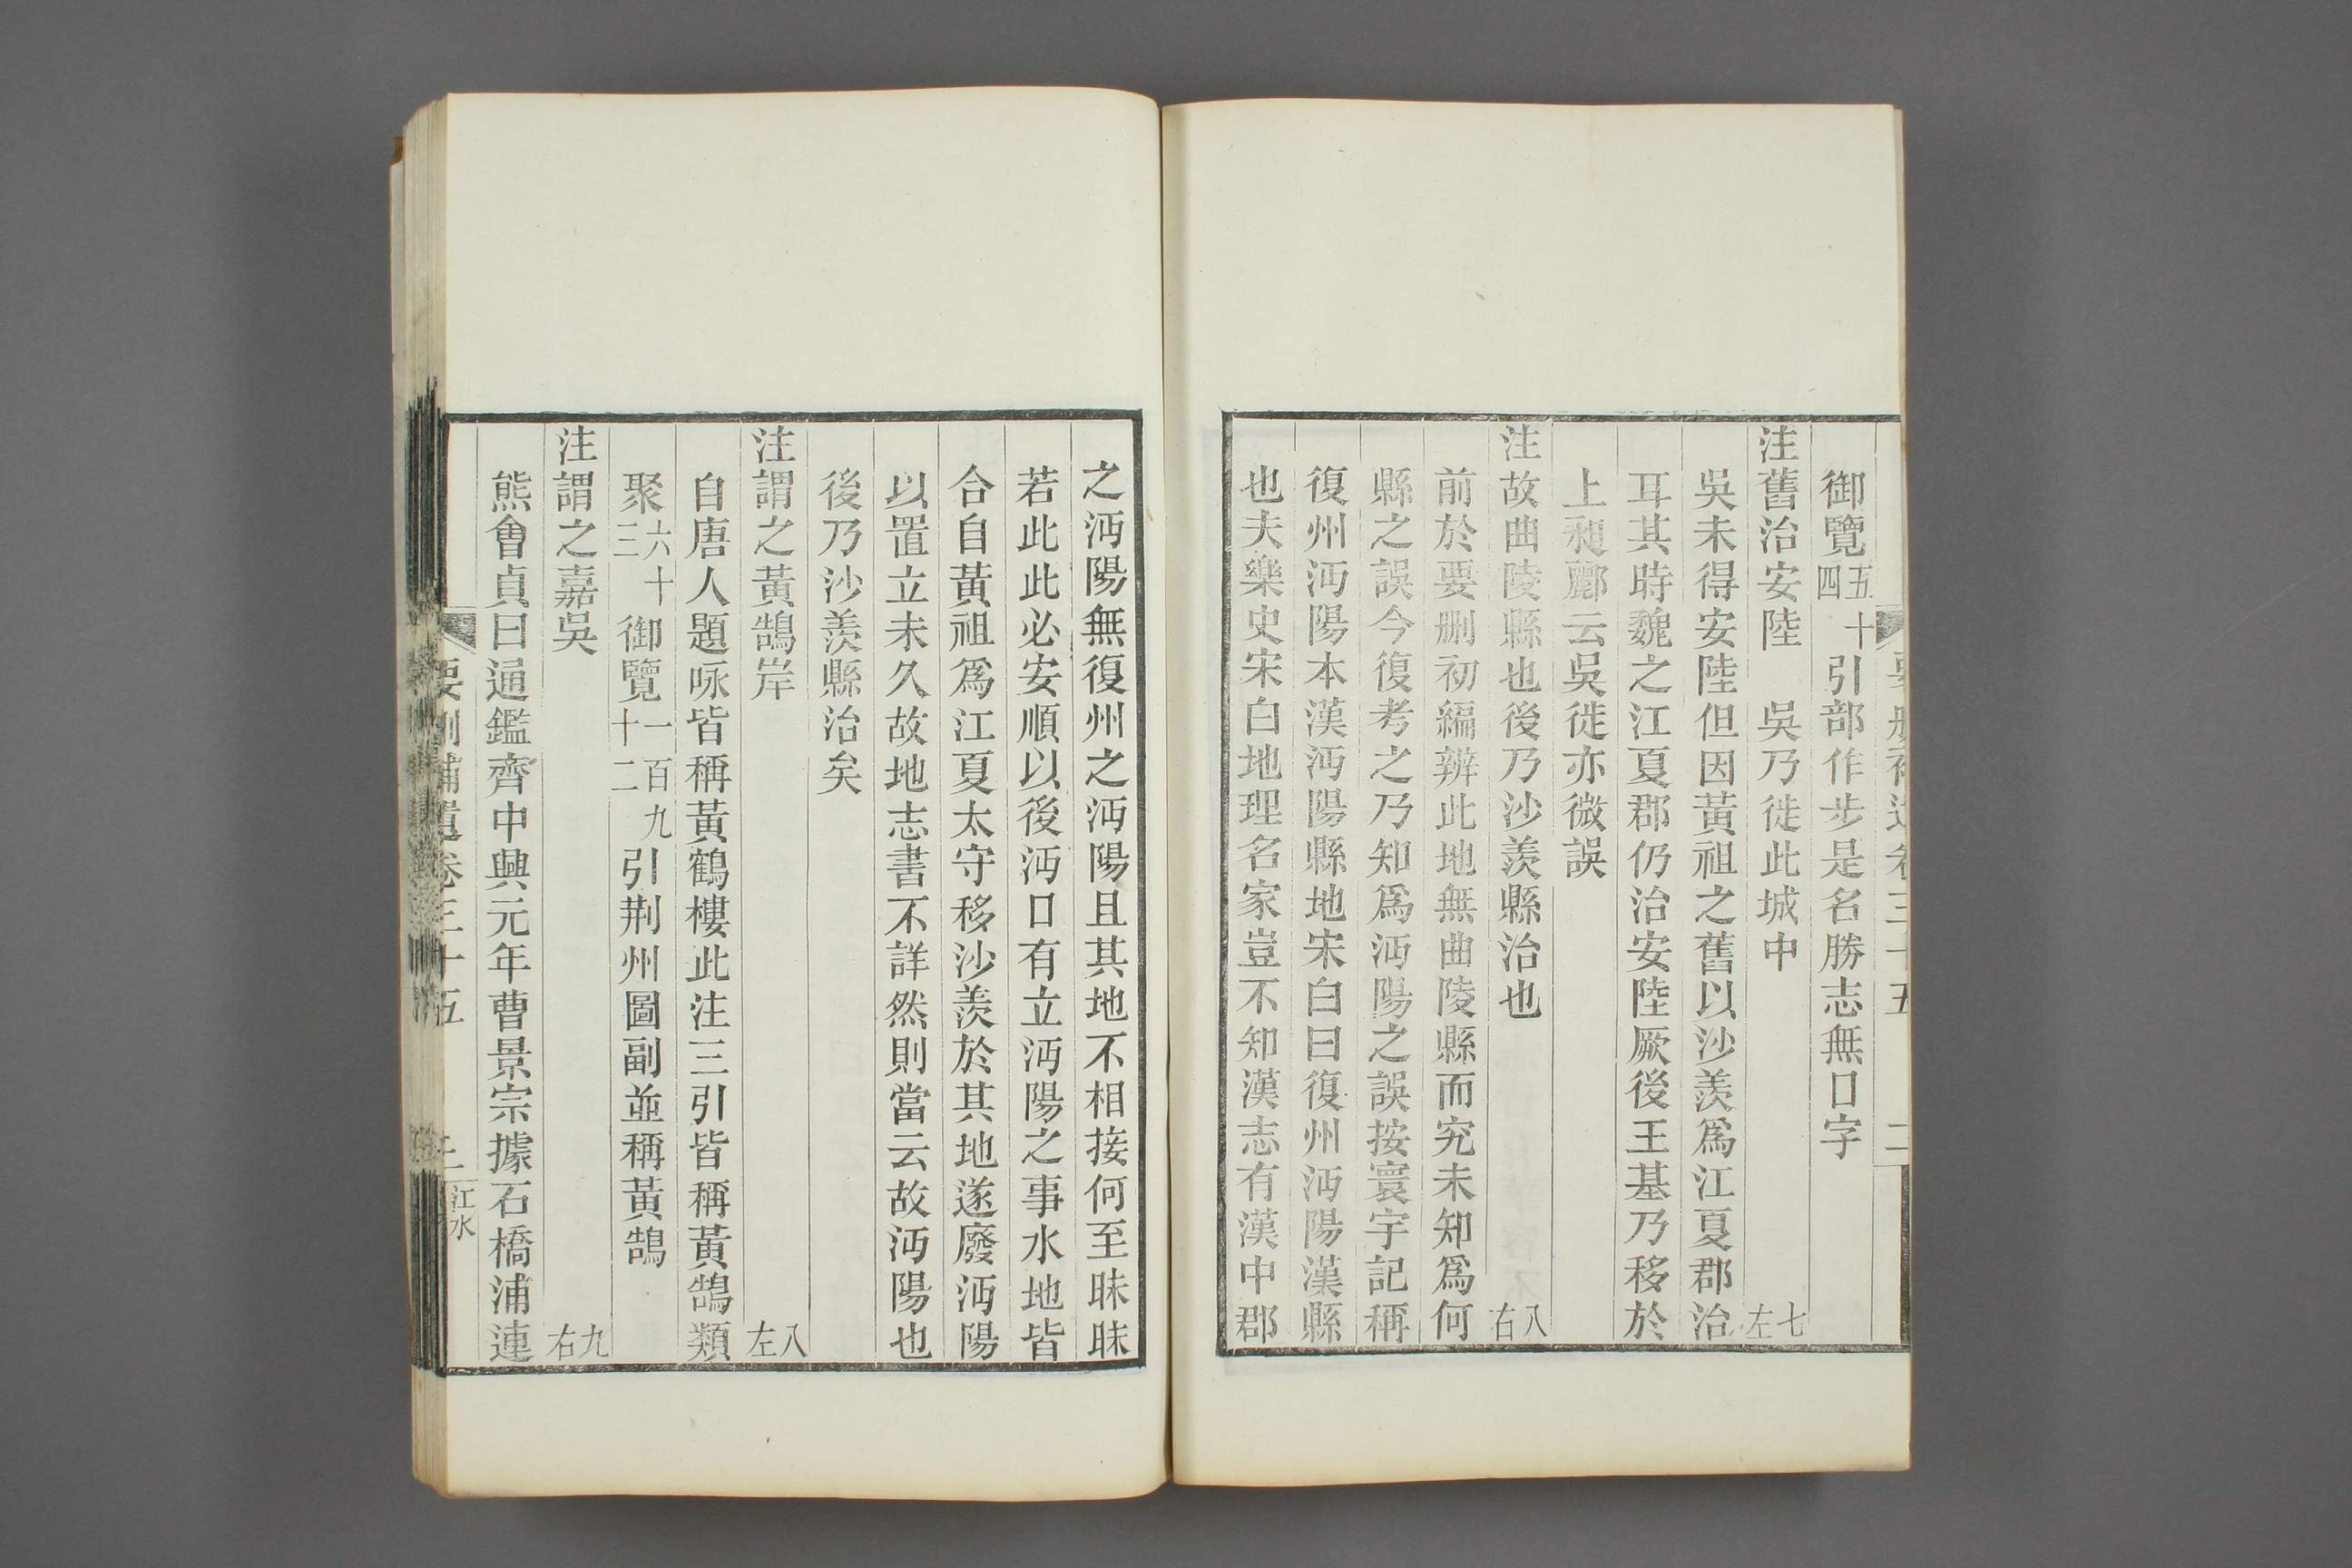 御覽五十四引部作步是名勝志無口字
注舊治安陸　吳乃徙此城中　七左
吳未得安陸但因黃祖之舊以沙羨爲江夏郡治
耳其時魏之江夏郡仍治安陸厥後王基乃移於
上昶酈云吳徙亦微誤
注故曲陵縣也後乃沙羨縣治也　八右
前於要刪初編辨此地無曲陵縣而究未知爲何
縣之誤今復考之乃知爲沔陽之誤按寰宇記稱
復州沔陽本漢沔陽縣地宋白曰復州沔陽漢縣
也夫樂史宋白地理名家豈不知漢志有漢中郡
之沔陽無復州之沔陽且其地不相接何至昧昧
若此此必安順以後沔口有立沔陽之事水地皆
合自黃祖爲江夏太守移沙羨於其地遂廢沔陽
以置立未久故地志書不詳然則當云故沔陽也
後乃沙羨縣治矣
注謂之黃鵠岸　八左
自唐人題咏皆稱黃鶴樓此注三引皆稱黃鵠類
聚六十三御覽一百九十二引荆州圖副並稱黃鵠
注謂之嘉吳　九右
熊會貞曰通鑑齊中興元年曹景宗據石橋浦連
要刪補遺卷三十五　二　江水